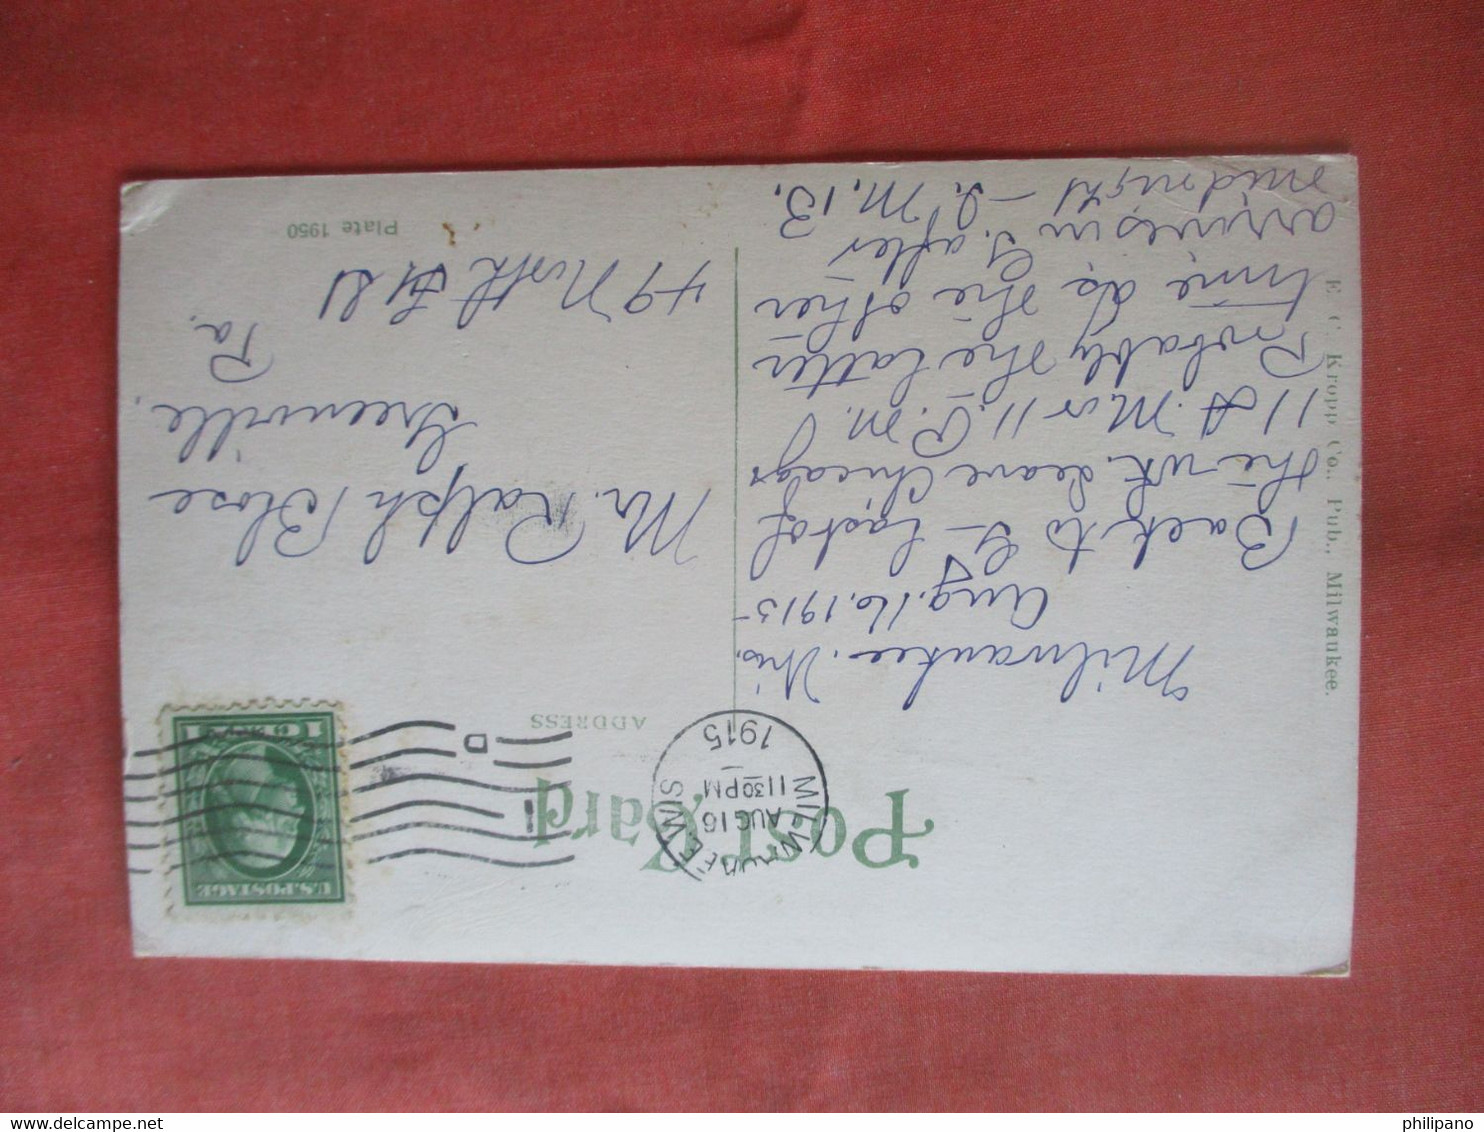 Post Card
ADDRESS
MILWAUKEE WIS
AUG 16
11 30 PM
1915
U.S. POSTAGE
1 1
Milwaukee. Wis.
Aug. 16. 1915
Back to G— last of
the wk. Leave Chicago
11 A.M or 11. P.M.
Probably the latter
time as the other
arrives in G. after
midnight — L. M. B.
Mr. Ralph Blose
Greenville,
Pa.
49 North
Plate 1950
E. C. Kropp Co., Pub., Milwaukee.
www.delcampe.net
philipano